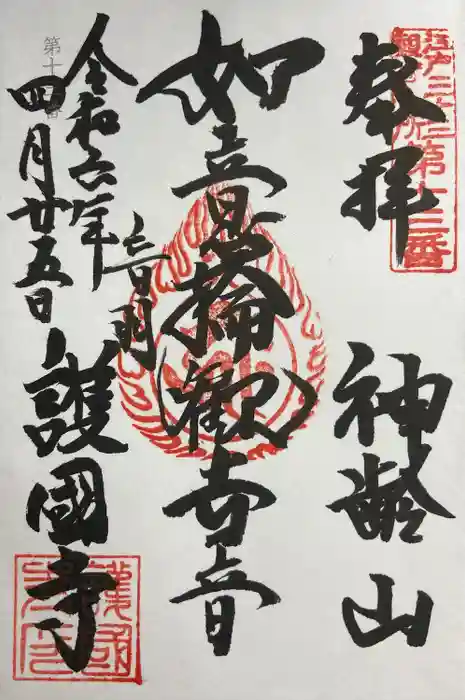 奉拝
神齢山
江戸三十三
第十三番
如意輪觀世音
音羽
令和六年
四月廿五日
護國寺